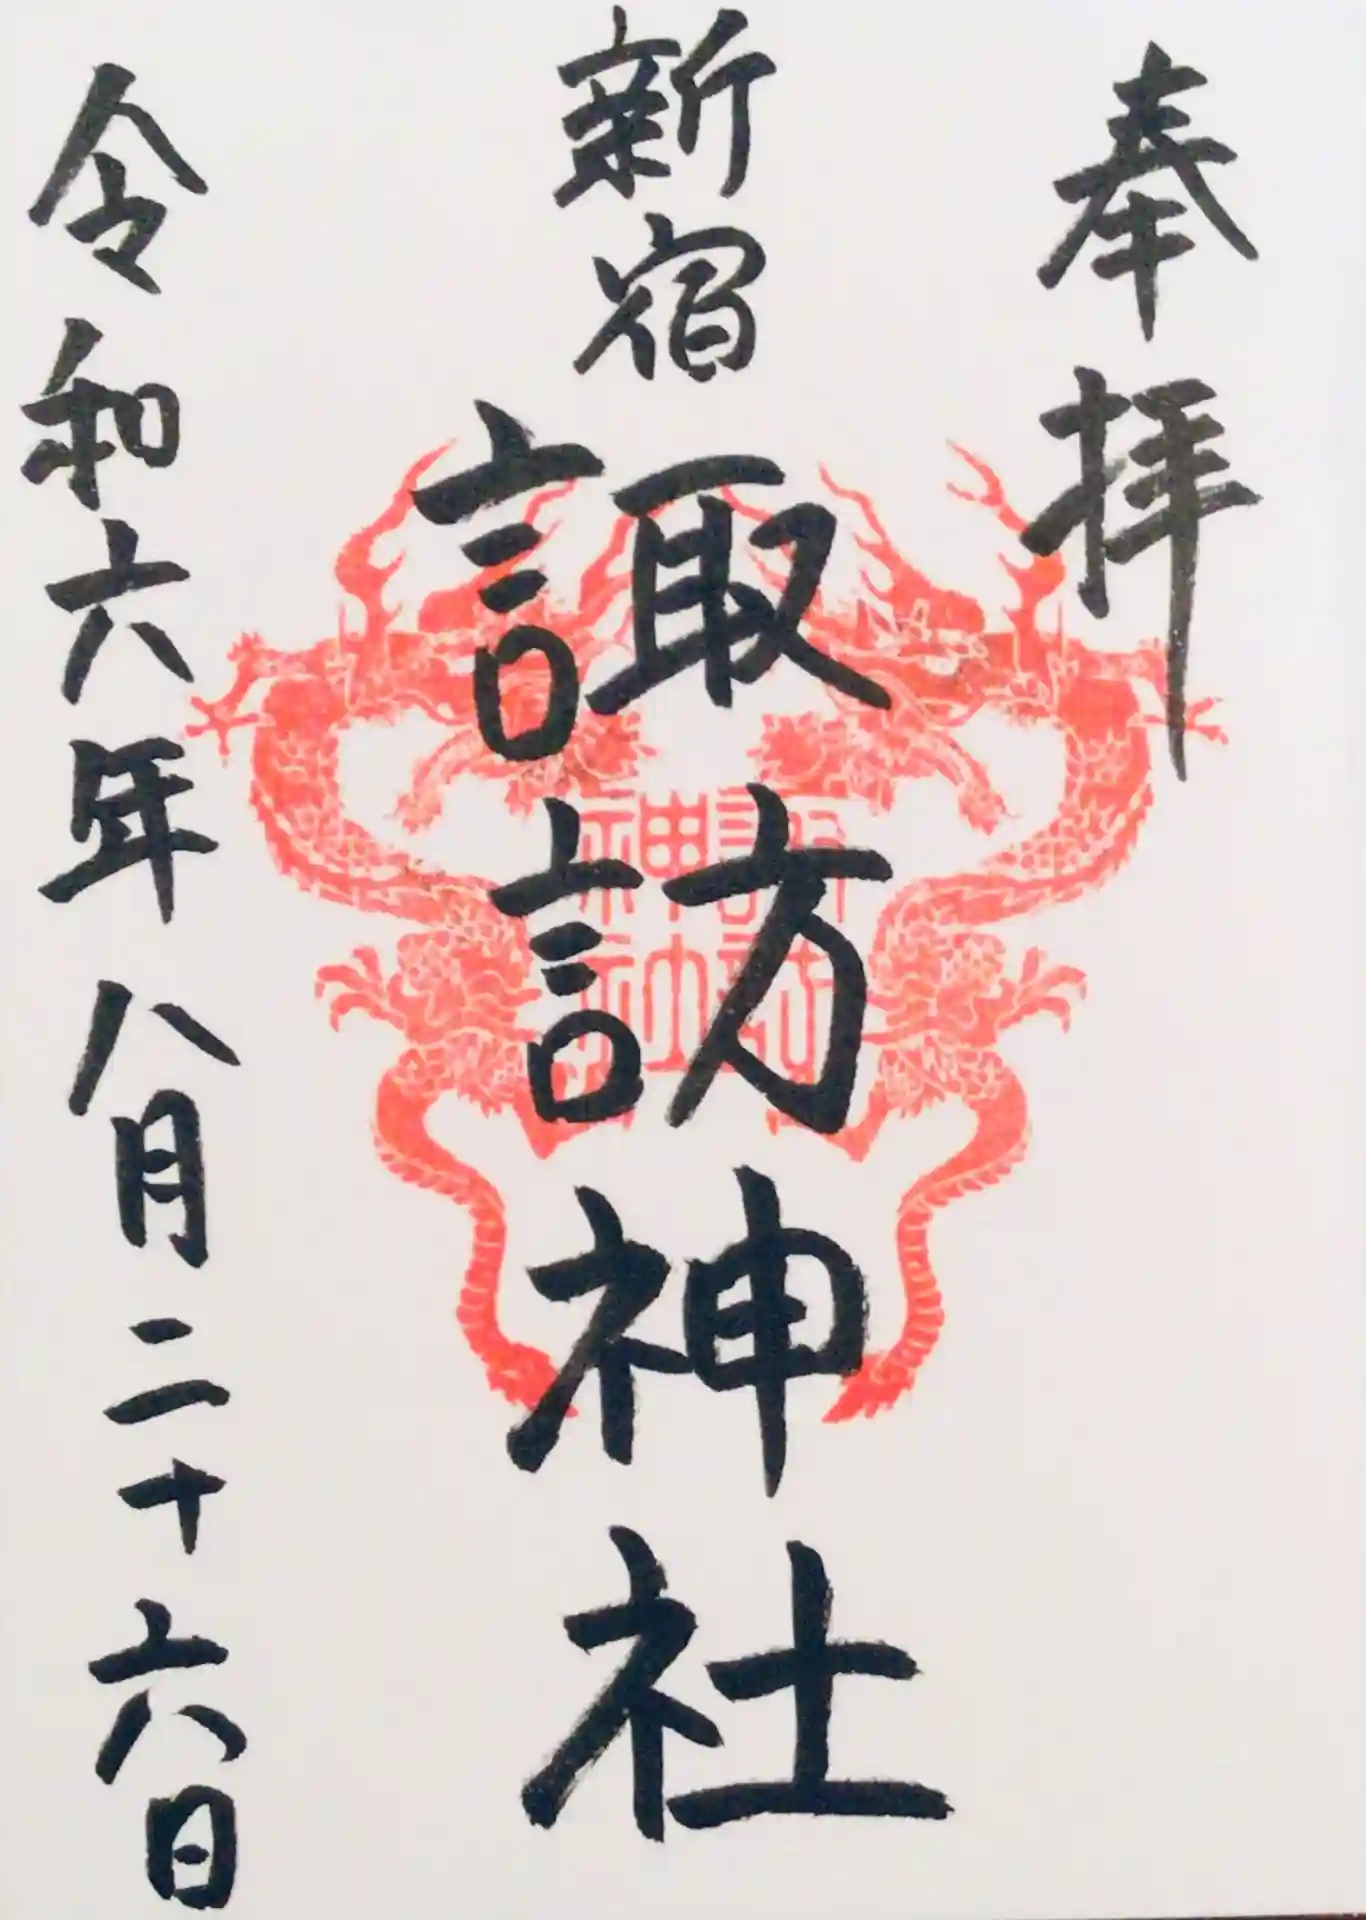 奉拝
新宿
諏訪神社
令和六年八月二十六日
諏訪
神社